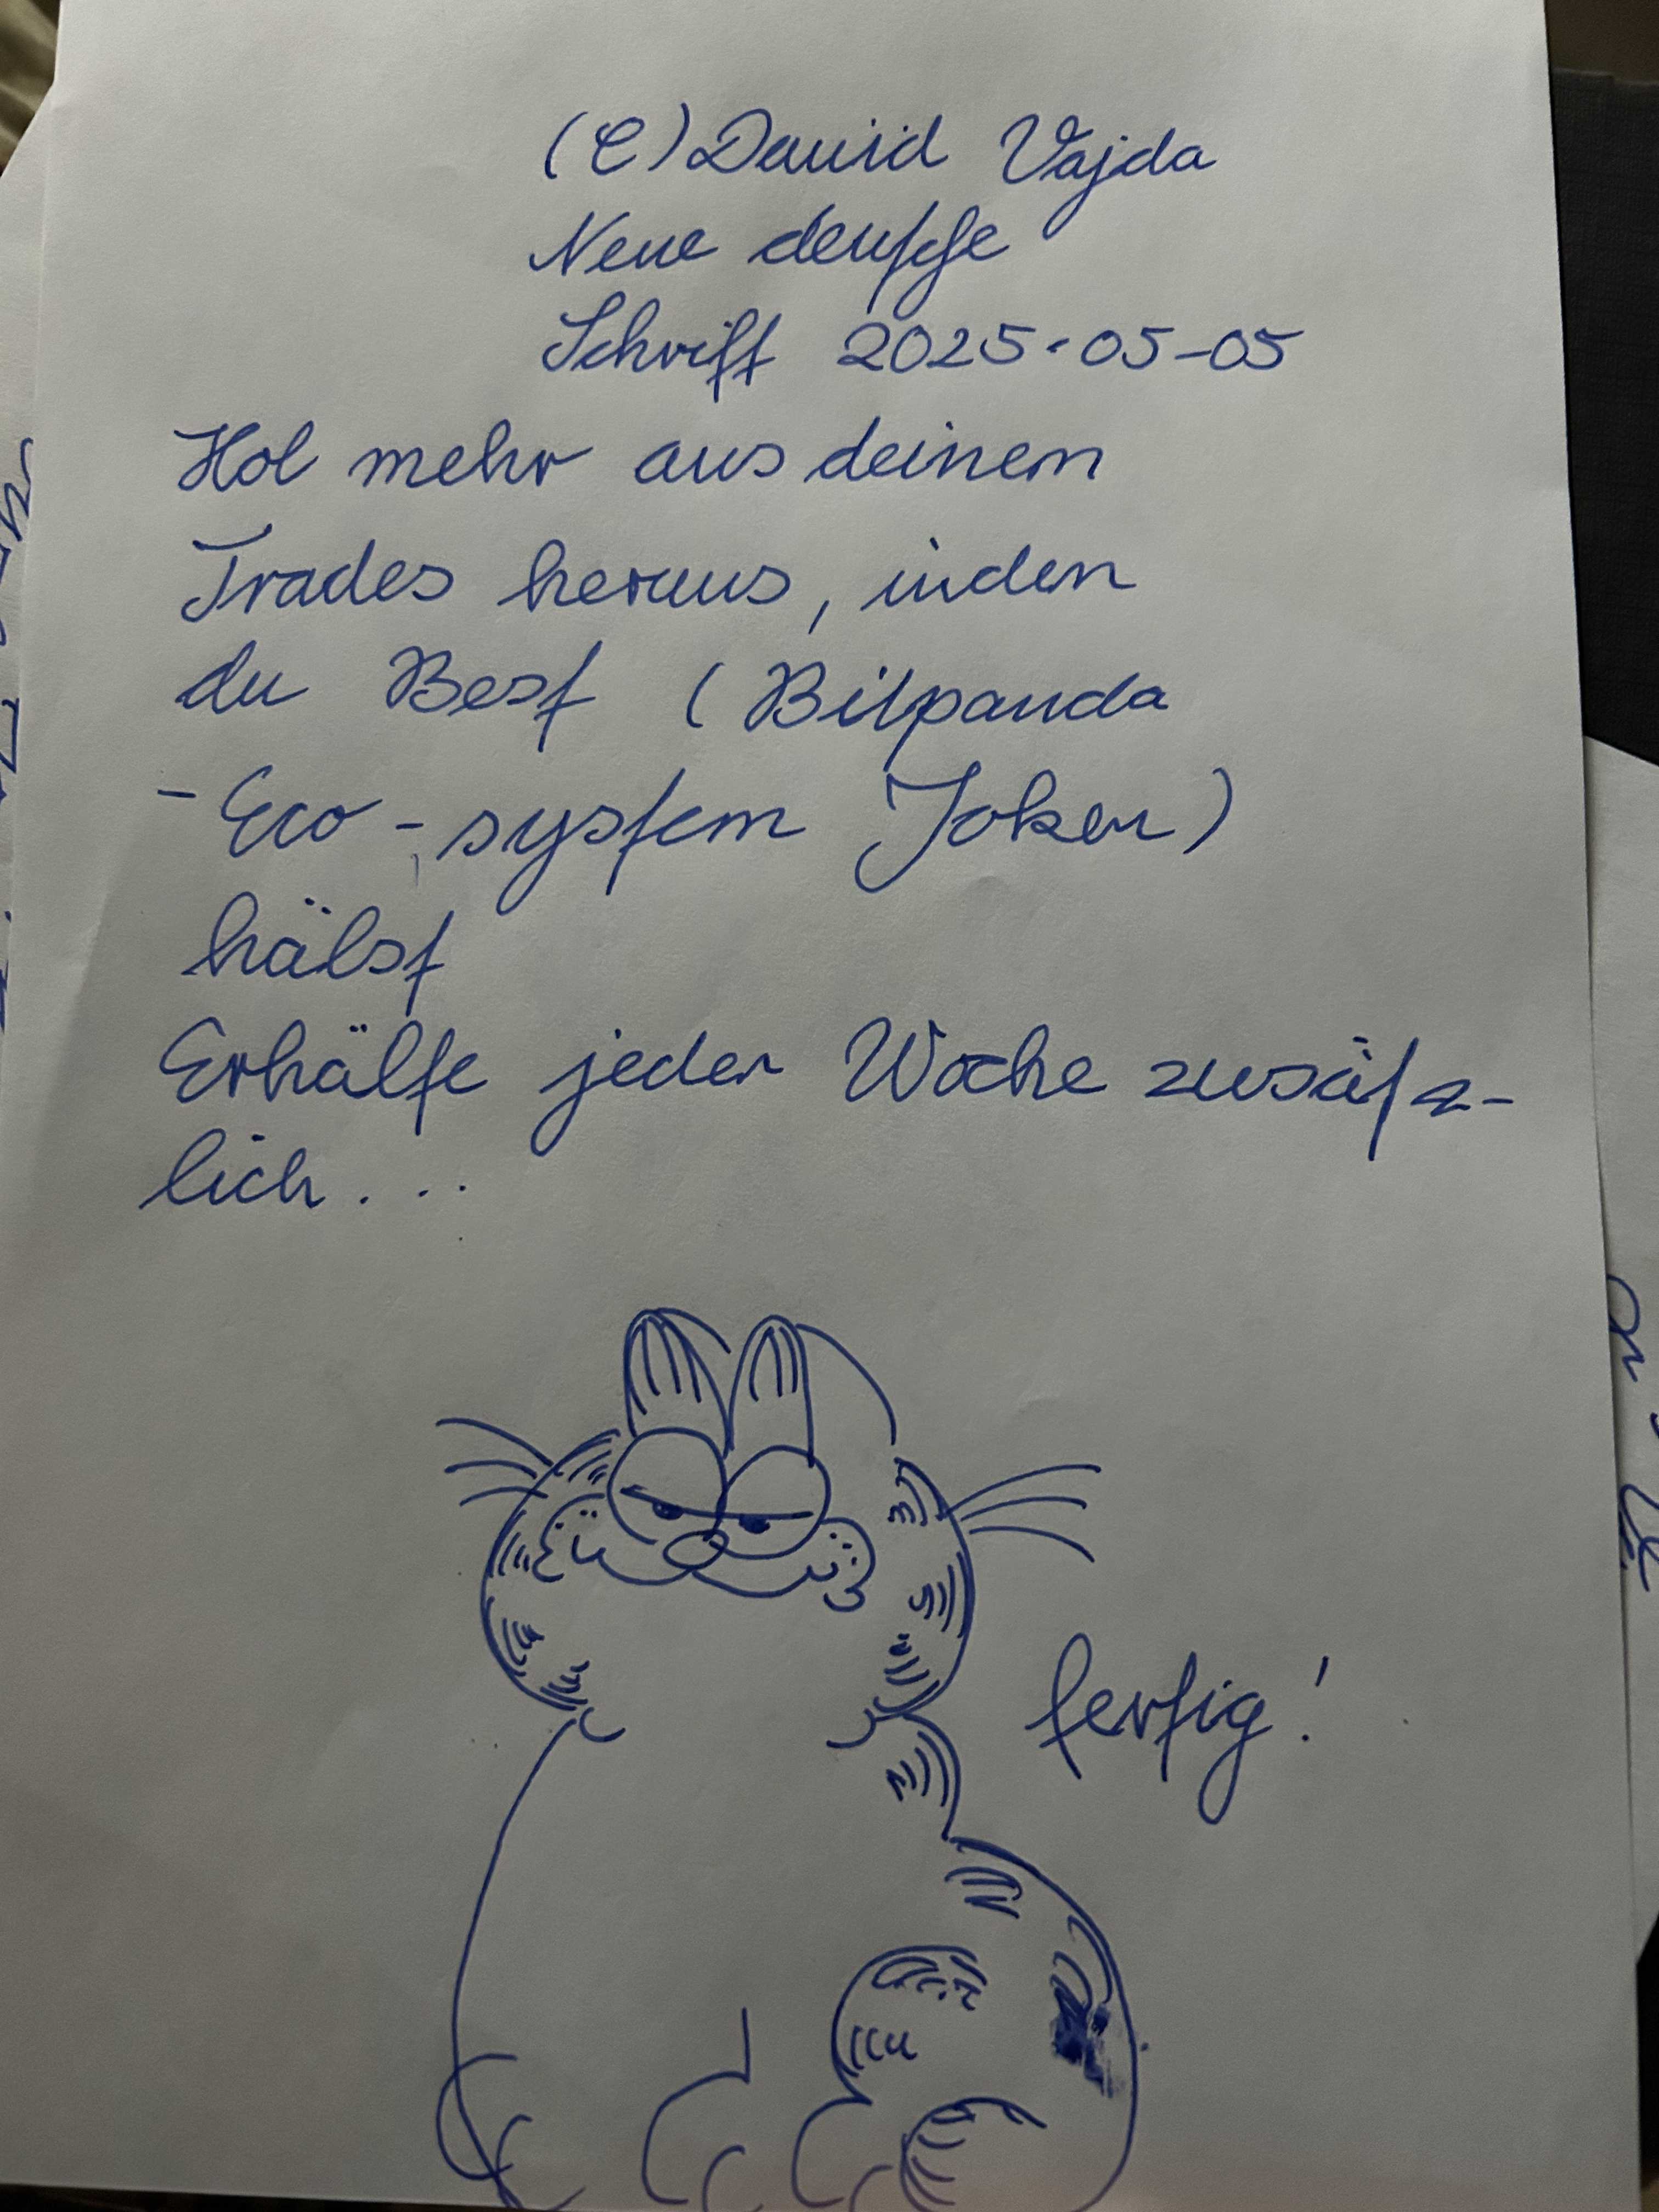 (C) David Vajda
Neue deutsche
Schrift 2025-05-05
Hol mehr aus deinem
Trades heraus, inden
du Best (Bitpanda
-Eco-system Token)
hälst
Erhälte jeder Woche zusätz-
lich...
fertig!